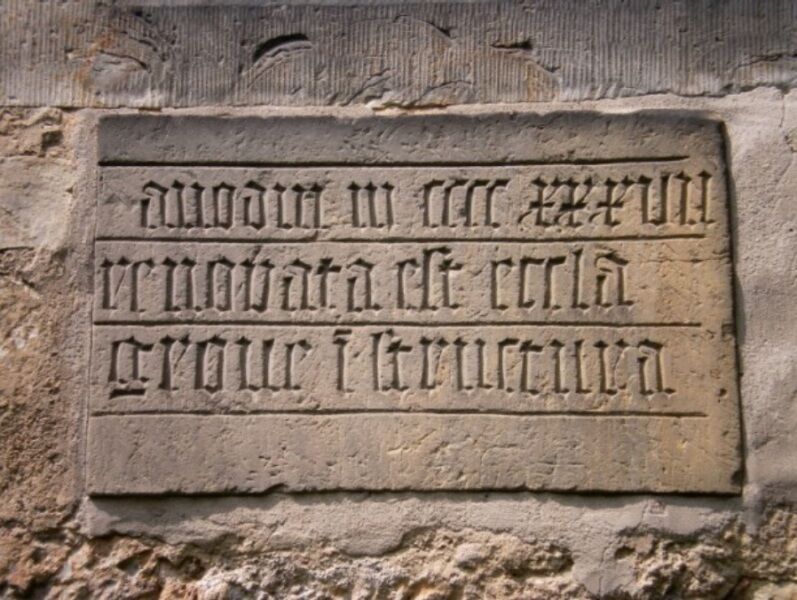 anodni m cccc xxxvii
renovata est eccla
groue ī structura